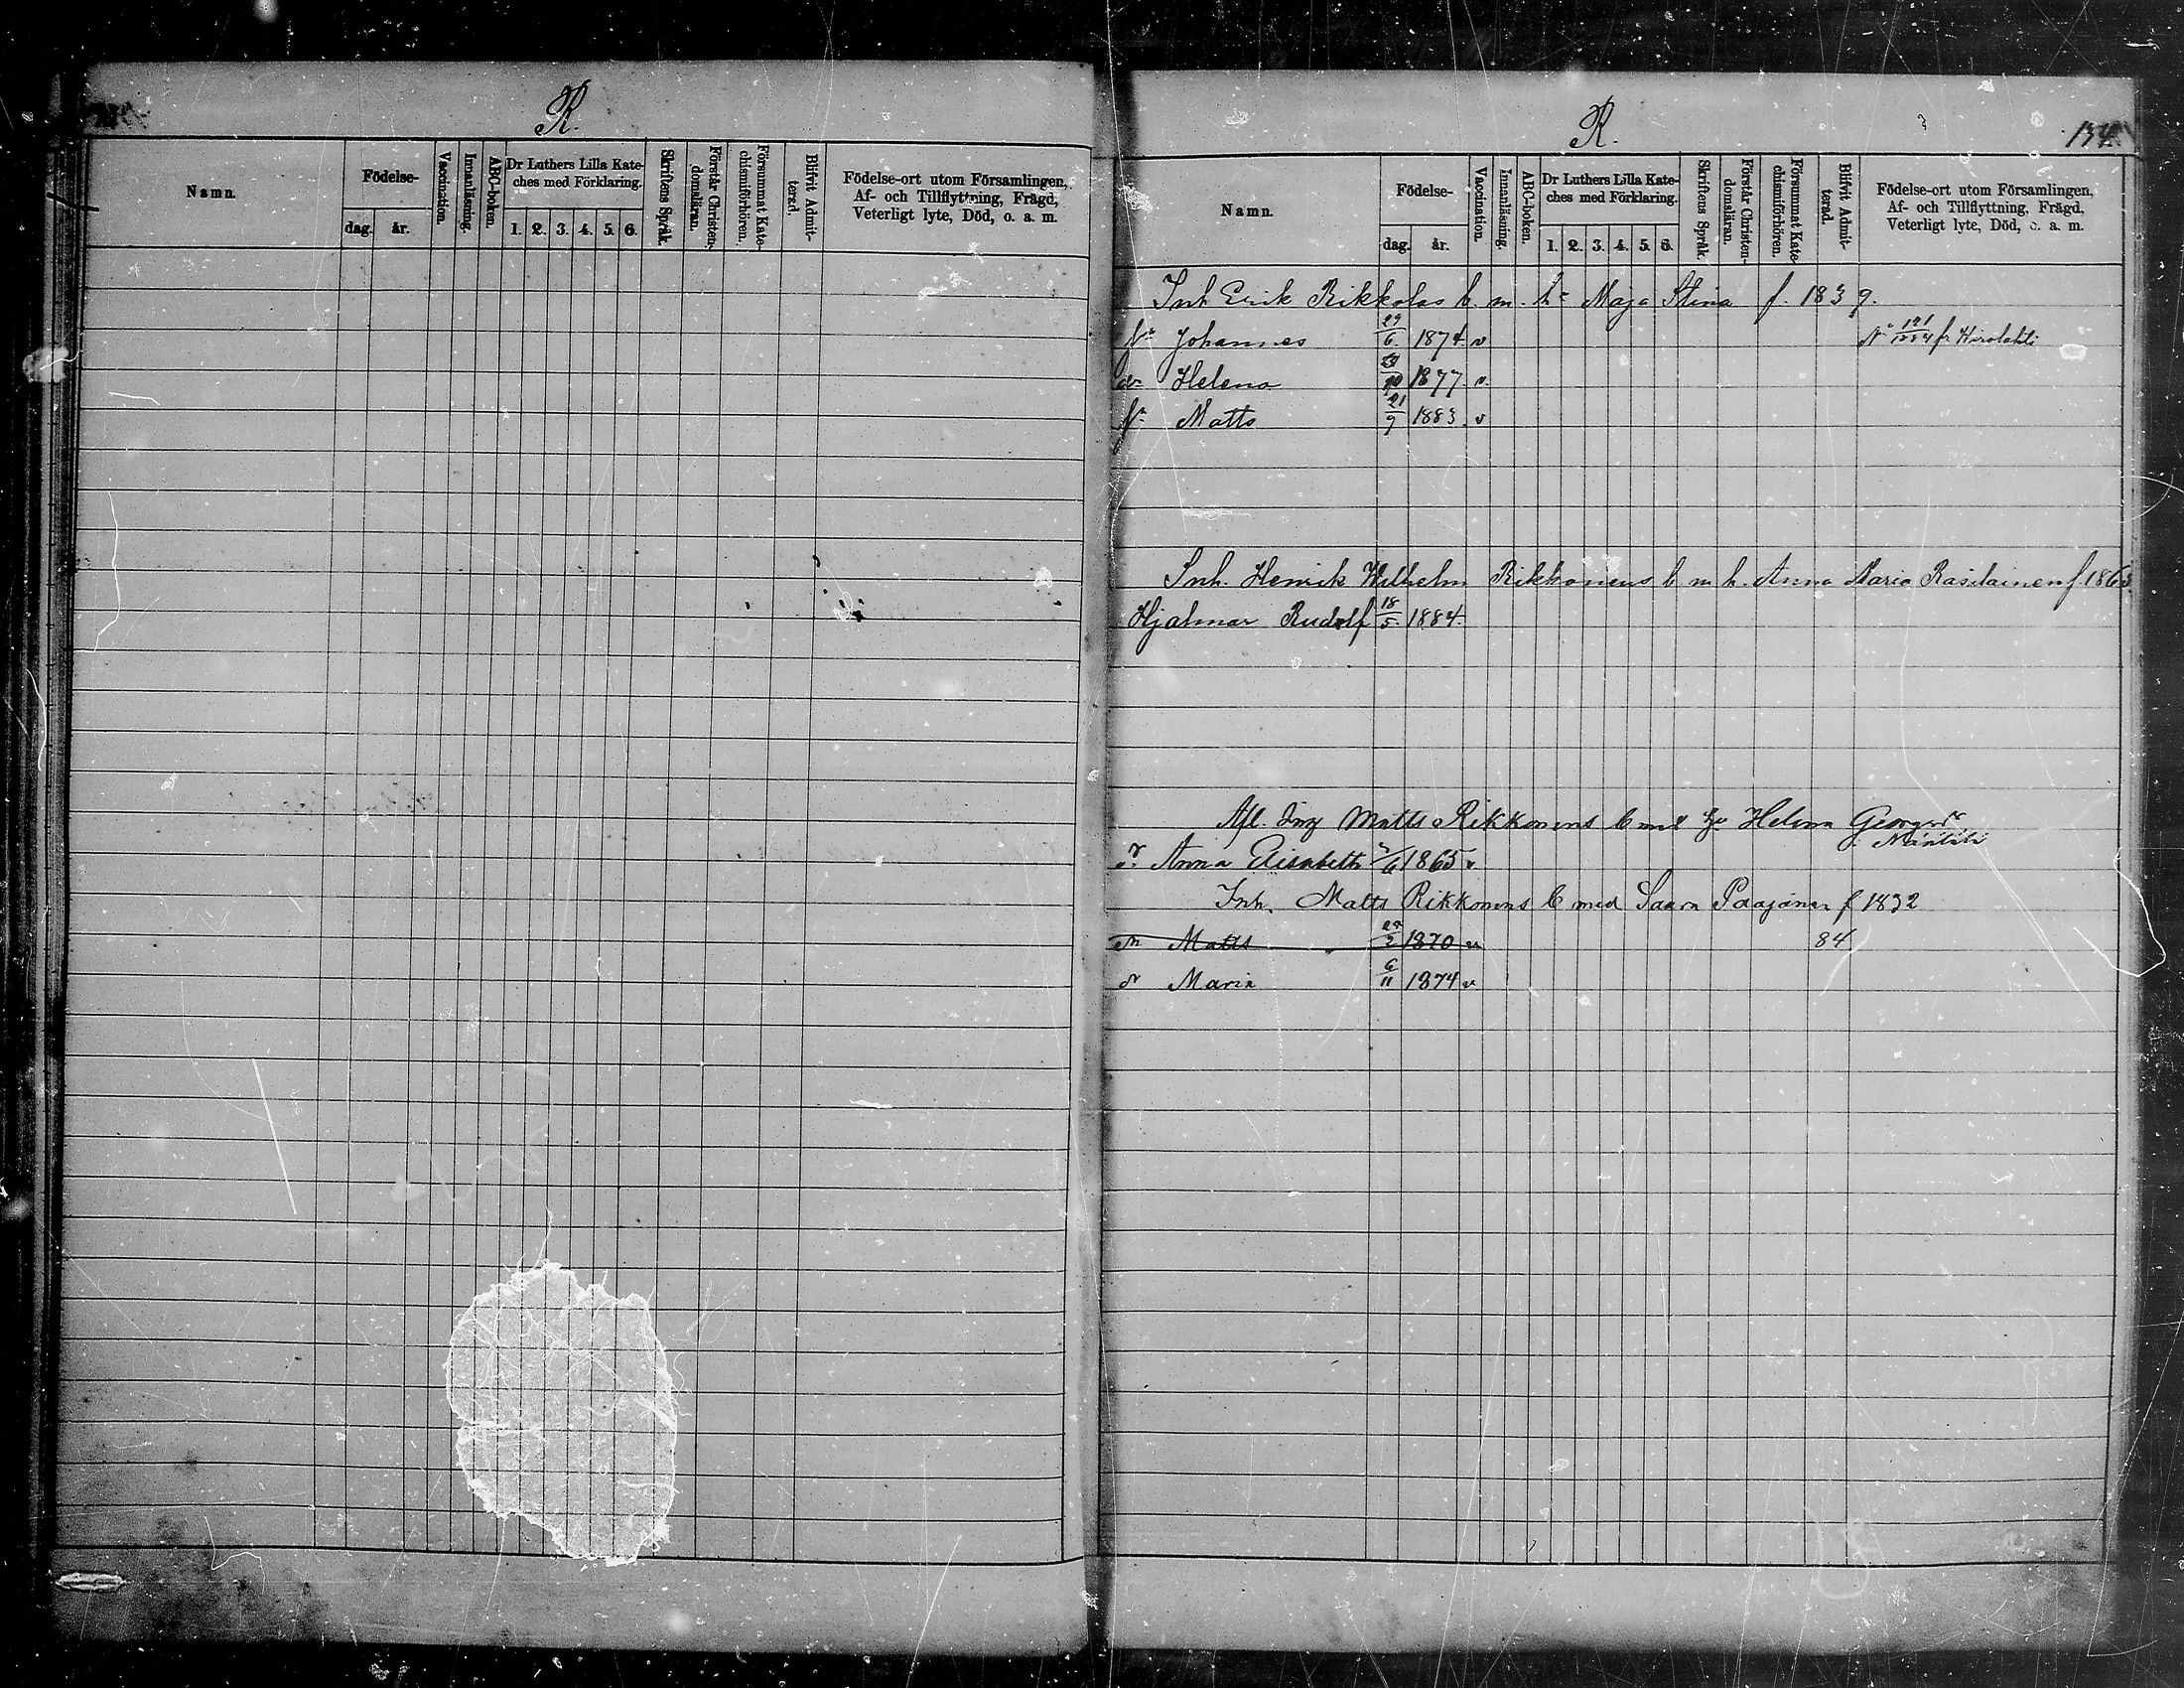 R.
Namn.
Födelse-
dag. år.
Vaccination.
Innanläsning.
ABC-boken.
Dr Luthers Lilla Kate-
ches med Förklaring.
1. 2. 3. 4. 5. 6.
Skriftens Språk.
Förstår Christen-
domsläran.
Försummat Kate-
chismiförhören.
Blifvit Admit-
terad.
Födelse-ort utom Församlingen,
Af- och Tillflyttning, Frägd,
Veterligt lyte, Död, o. a. m.
R.
134
Namn.
Födelse-
dag. år.
Vaccination.
Innanläsning.
ABC-boken.
Dr Luthers Lilla Kate-
ches med Förklaring.
1. 2. 3. 4. 5. 6.
Skriftens Språk.
Förstår Christen-
domsläran.
Försummat Kate-
chismiförhören.
Blifvit Admit-
terad.
Födelse-ort utom Församlingen,
Af- och Tillflyttning, Frägd,
Veterligt lyte, Död, o. a. m.
Inh. Erik Rikkolas b. m. h. Maja Stina f. 1839.
Johannes 29/6 1874 v
Helena 1877 v.
Matts 21/9 1883 v
Inh. Henrik Wilhelm Rikkonens b m h. Anna Maria Rasilainen f. 1863
Hjalmar Rudolf 18/5 1884.
Afl. Matts Rikkonens b med Helena
Anna Elisabeth 1865 v.
Inh. Matts Rikkonens b med Saara Paajanen f 1832
Matts 1870 v 84
Maria 6/11 1874 v